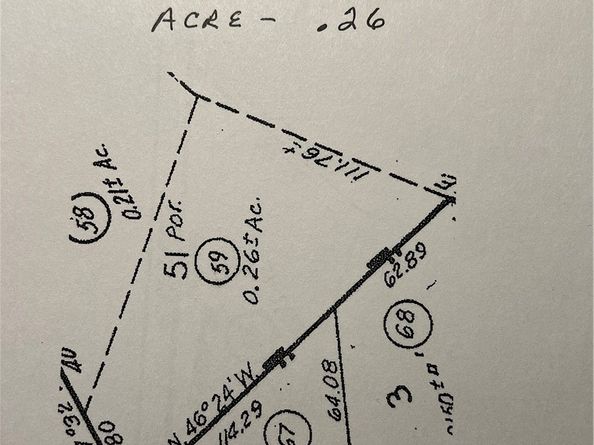 ACRE - .26
111.76±
(58)
0.21± Ac.
51 POR.
(59)
0.26± Ac.
62.89
(68)
3
64.08
N 46°24'W.
114.29
(67)
40
80